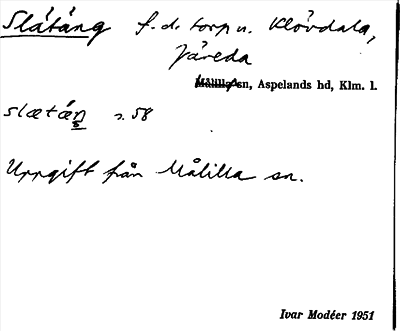 Slåtång f. d. torp u. Klövdala,
Järeda
Målilla sn, Aspelands hd, Klm. l.
slætáŋ s. 58
Uppgift från Målilla sn.
Ivar Modéer 1951